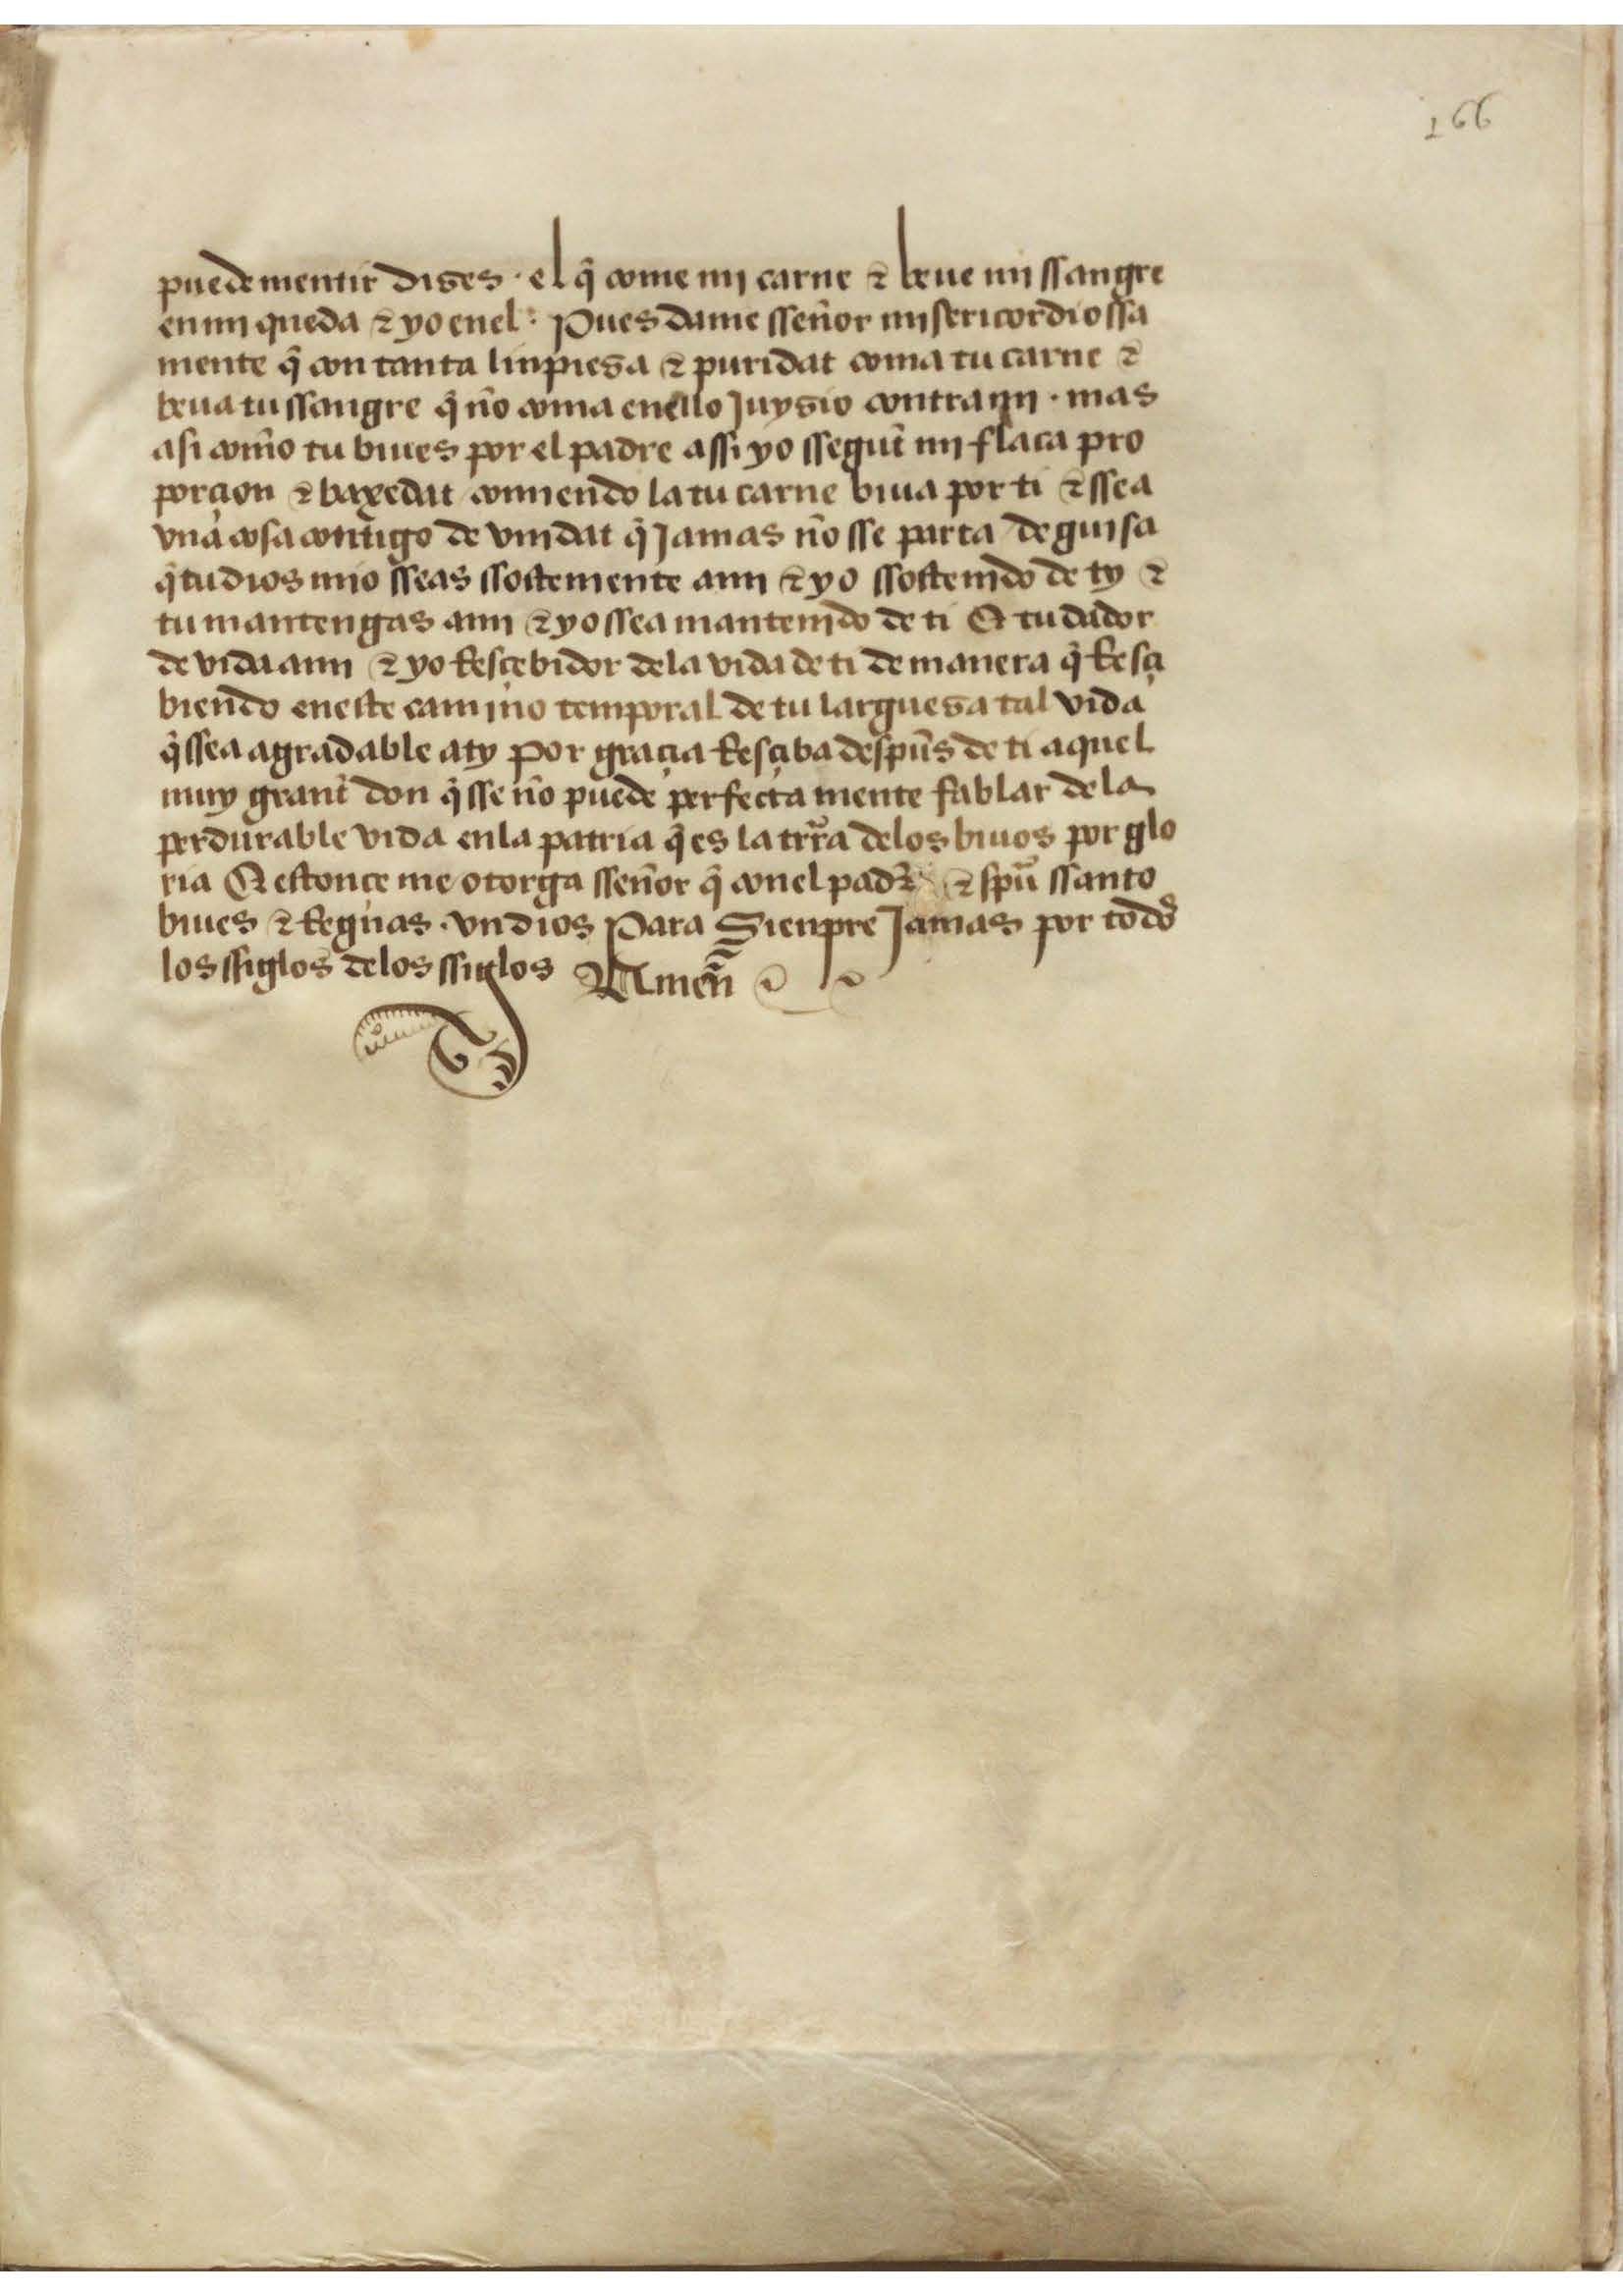 166
puede mentir dizes · el q̃ come mj carne ⁊ beue mj ssangre
en mj queda ⁊ yo enel : Pues dame sseñor misericordiossa
mente q̃ con tanta linpieza ⁊ puridat coma tu carne ⁊
beua tu ssangre q̃ ño coma enello Juyzio contra mj · mas
asi com̃o tu biues por el padre assi yo ssegũt mj flaca pro
porçion ⁊ baxedat comiendo la tu carne biua por ti ⁊ ssea
vna cosa contigo de vnidat q̃ Jamas ño sse parta de guisa
q̃ tu dios mio sseas ssosteniente a mj ⁊ yo ssostenido de ty ⁊
tu mantengas a mj ⁊ yo ssea mantenido de ti Et tu dador
de vida a mj ⁊ yo Resçebidor dela vida de ti de manera q̃ Resçi
biendo eneste camjno temporal de tu largueza tal vida
q̃ ssea agradable aty Por graçia Resçiba despũs de ti aquel
muy grant don q̃ sse ño puede perfecta mente fablar dela
perdurable vida enla patria q̃ es la trr̃a delos biuos por glo
ria Et estonce me otorga sseñor q̃ conel padr̃ ⁊ spũ ssanto
biues ⁊ Regnas · vn dios Para Sienpre Jamas por todos
los ssiglos delos ssiglos Ameñ